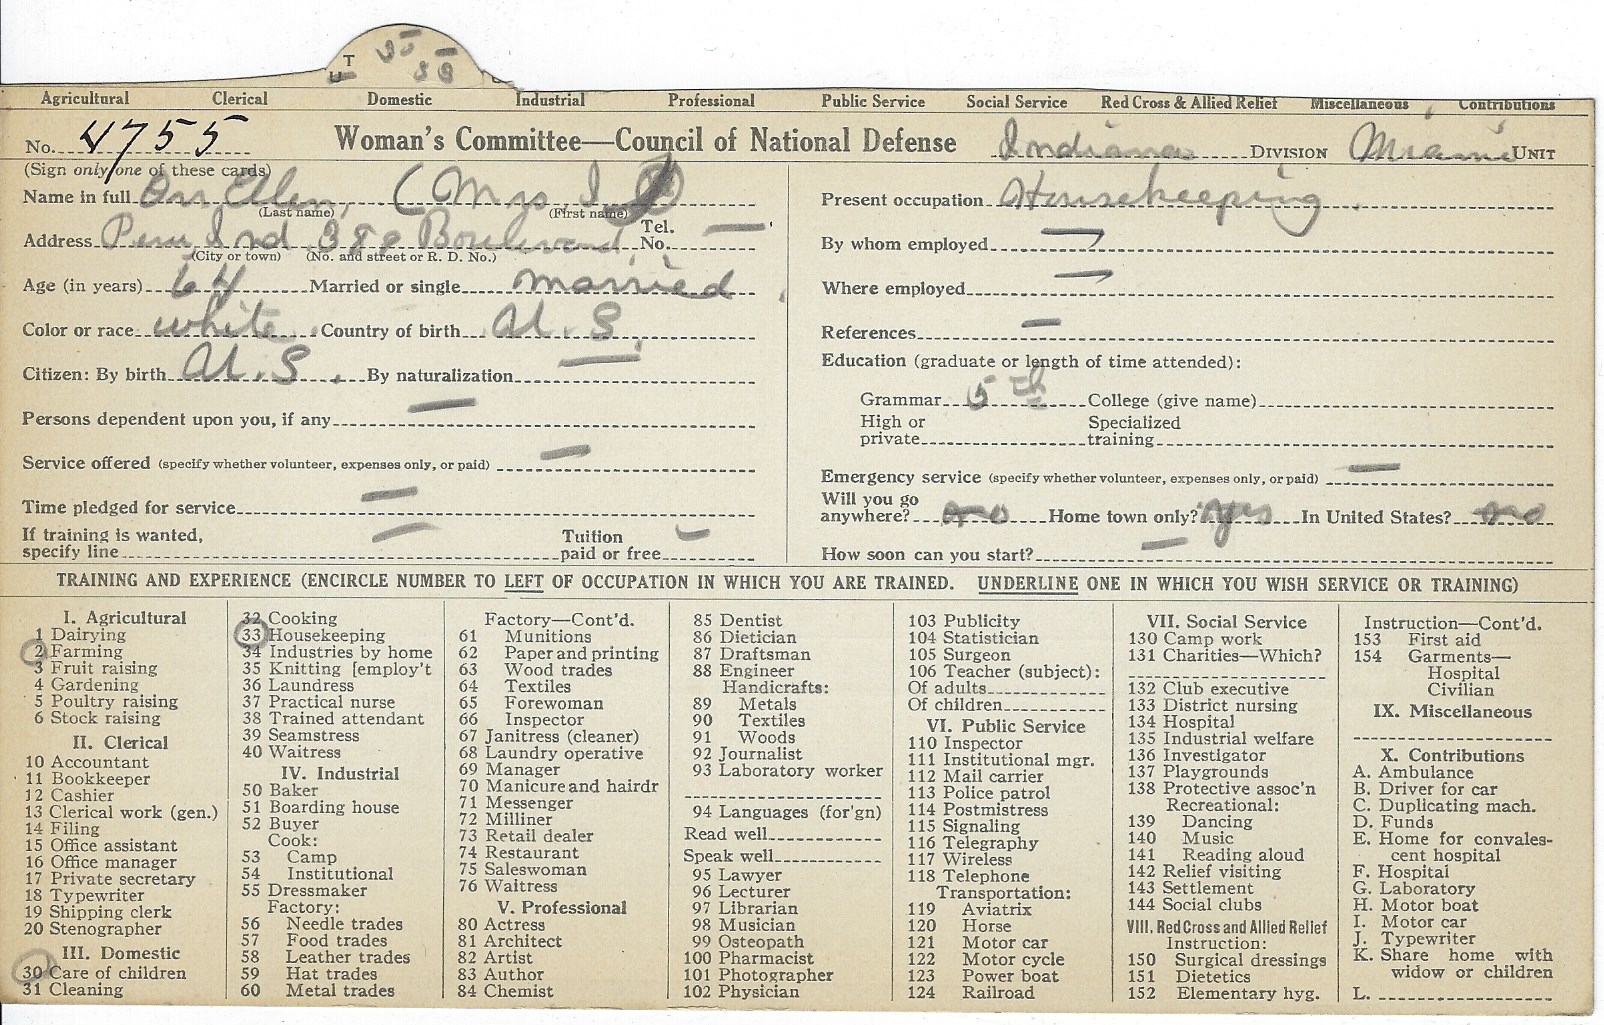 T
Agricultural Clerical Domestic Industrial Professional Public Service Social Service Red Cross & Allied Relief Miscellaneous Contributions
No. 4755 Woman's Committee—Council of National Defense Indiana DIVISION Miami UNIT
(Sign only one of these cards)
Name in full Orr Ellen, (Mrs I
(Last name) (First name)
Address Peru Ind 380 Boulevard, Tel. No. —
(City or town) (No. and street or R. D. No.)
Age (in years) 64 Married or single married
Color or race white Country of birth U. S.
Citizen: By birth U. S. By naturalization —
Persons dependent upon you, if any —
Service offered (specify whether volunteer, expenses only, or paid) —
Time pledged for service —
If training is wanted, specify line — Tuition paid or free —
Present occupation Housekeeping.
By whom employed —
Where employed —
References —
Education (graduate or length of time attended):
Grammar 5th College (give name)
High or private Specialized training
Emergency service (specify whether volunteer, expenses only, or paid) —
Will you go anywhere? no Home town only? yes In United States? no
How soon can you start? —
TRAINING AND EXPERIENCE (ENCIRCLE NUMBER TO LEFT OF OCCUPATION IN WHICH YOU ARE TRAINED. UNDERLINE ONE IN WHICH YOU WISH SERVICE OR TRAINING)
I. Agricultural
1 Dairying
2 Farming
3 Fruit raising
4 Gardening
5 Poultry raising
6 Stock raising
II. Clerical
10 Accountant
11 Bookkeeper
12 Cashier
13 Clerical work (gen.)
14 Filing
15 Office assistant
16 Office manager
17 Private secretary
18 Typewriter
19 Shipping clerk
20 Stenographer
III. Domestic
30 Care of children
31 Cleaning
32 Cooking
33 Housekeeping
34 Industries by home
35 Knitting [employ't
36 Laundress
37 Practical nurse
38 Trained attendant
39 Seamstress
40 Waitress
IV. Industrial
50 Baker
51 Boarding house
52 Buyer
Cook:
53 Camp
54 Institutional
55 Dressmaker
Factory:
56 Needle trades
57 Food trades
58 Leather trades
59 Hat trades
60 Metal trades
Factory—Cont'd.
61 Munitions
62 Paper and printing
63 Wood trades
64 Textiles
65 Forewoman
66 Inspector
67 Janitress (cleaner)
68 Laundry operative
69 Manager
70 Manicure and hairdr
71 Messenger
72 Milliner
73 Retail dealer
74 Restaurant
75 Saleswoman
76 Waitress
V. Professional
80 Actress
81 Architect
82 Artist
83 Author
84 Chemist
85 Dentist
86 Dietician
87 Draftsman
88 Engineer
Handicrafts:
89 Metals
90 Textiles
91 Woods
92 Journalist
93 Laboratory worker
94 Languages (for'gn)
Read well
Speak well
95 Lawyer
96 Lecturer
97 Librarian
98 Musician
99 Osteopath
100 Pharmacist
101 Photographer
102 Physician
103 Publicity
104 Statistician
105 Surgeon
106 Teacher (subject):
Of adults
Of children
VI. Public Service
110 Inspector
111 Institutional mgr.
112 Mail carrier
113 Police patrol
114 Postmistress
115 Signaling
116 Telegraphy
117 Wireless
118 Telephone
Transportation:
119 Aviatrix
120 Horse
121 Motor car
122 Motor cycle
123 Power boat
124 Railroad
VII. Social Service
130 Camp work
131 Charities—Which?
132 Club executive
133 District nursing
134 Hospital
135 Industrial welfare
136 Investigator
137 Playgrounds
138 Protective assoc'n
Recreational:
139 Dancing
140 Music
141 Reading aloud
142 Relief visiting
143 Settlement
144 Social clubs
VIII. Red Cross and Allied Relief
Instruction:
150 Surgical dressings
151 Dietetics
152 Elementary hyg.
Instruction—Cont'd.
153 First aid
154 Garments—
Hospital
Civilian
IX. Miscellaneous
X. Contributions
A. Ambulance
B. Driver for car
C. Duplicating mach.
D. Funds
E. Home for convales-
cent hospital
F. Hospital
G. Laboratory
H. Motor boat
I. Motor car
J. Typewriter
K. Share home with
widow or children
L.